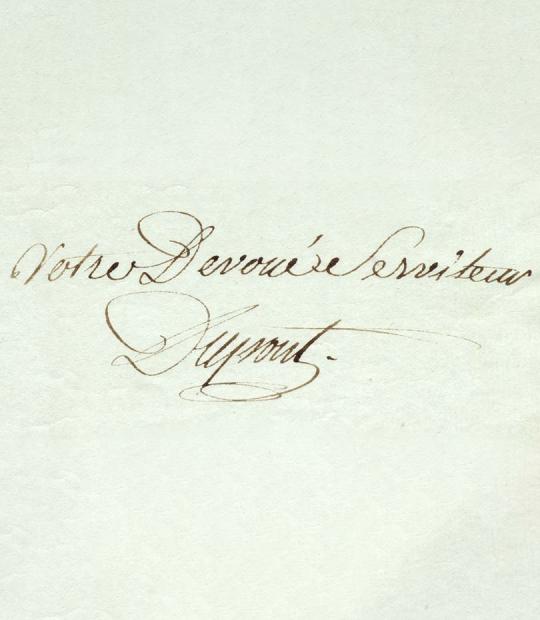 Votre Devoué Serviteur
Dupont